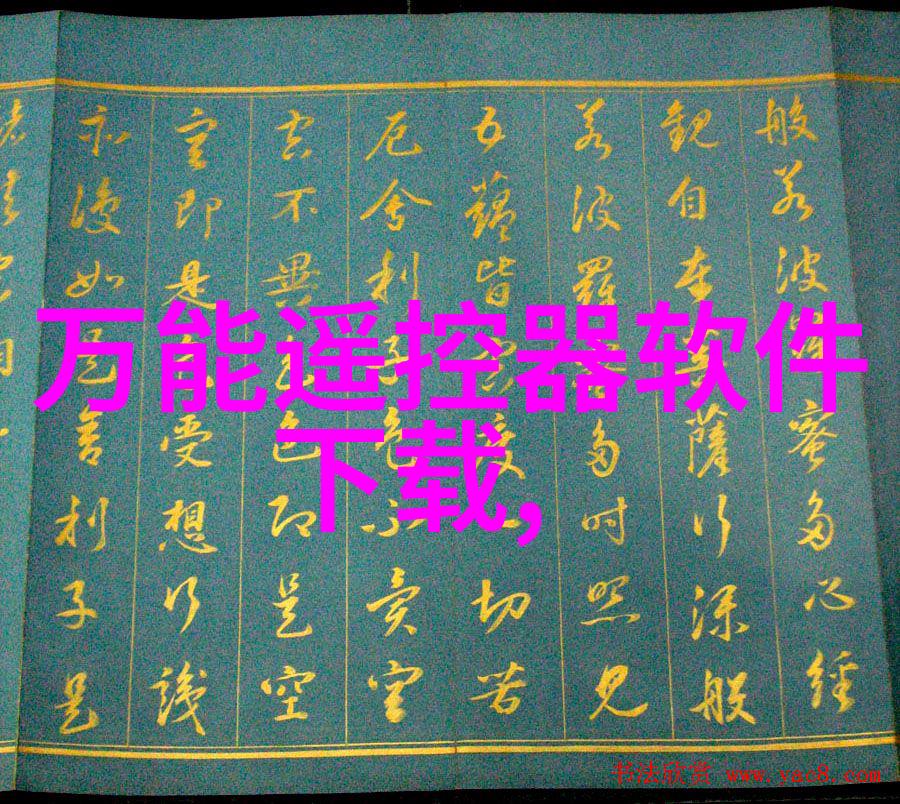 般若波羅蜜多心經
觀自在菩薩行深般
若波羅蜜多時照見
五蘊皆空度一切苦
厄舍利子色不異空
空不異色色即是空
空即是色受想行識
亦復如是舍利子是
万能遥控器软件
下载,
书法欣赏 www.yac8.com